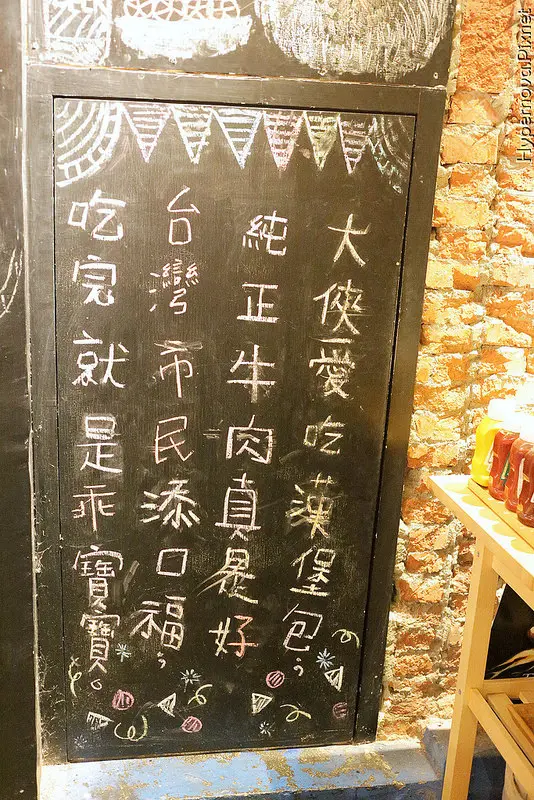 大俠愛吃漢堡包;
純正牛肉真是好
台灣市民添口福;
吃完就是乖寶寶。
Hypernova.Pixnet